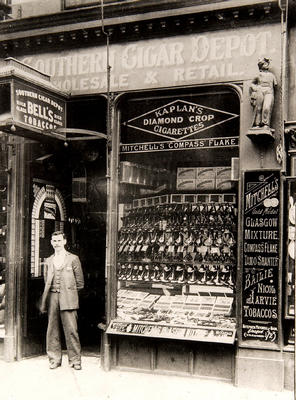 SOUTHERN CIGAR DEPOT.
WHOLESALE & RETAIL
SOUTHERN
CIGAR DEPOT
HIGH CLASS
BELL'S
TOBACCOS
KAPLAN'S
DIAMOND CROP
CIGARETTES
MITCHELL'S COMPASS FLAKE
MITCHELL'S
GLASGOW
MIXTURE
COMPASS
FLAKE
TAM O SHANTER
BAILIE
NICOL
JARVIE
TOBACCOS